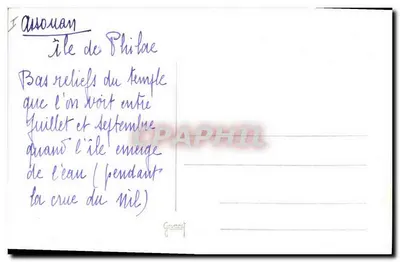 I Assouan
île de Philae
Bas reliefs du temple
que l'on voit entre
Juillet et septembre
quand l'île émerge
de l'eau (pendant
la crue du nil)
CPAPHIL